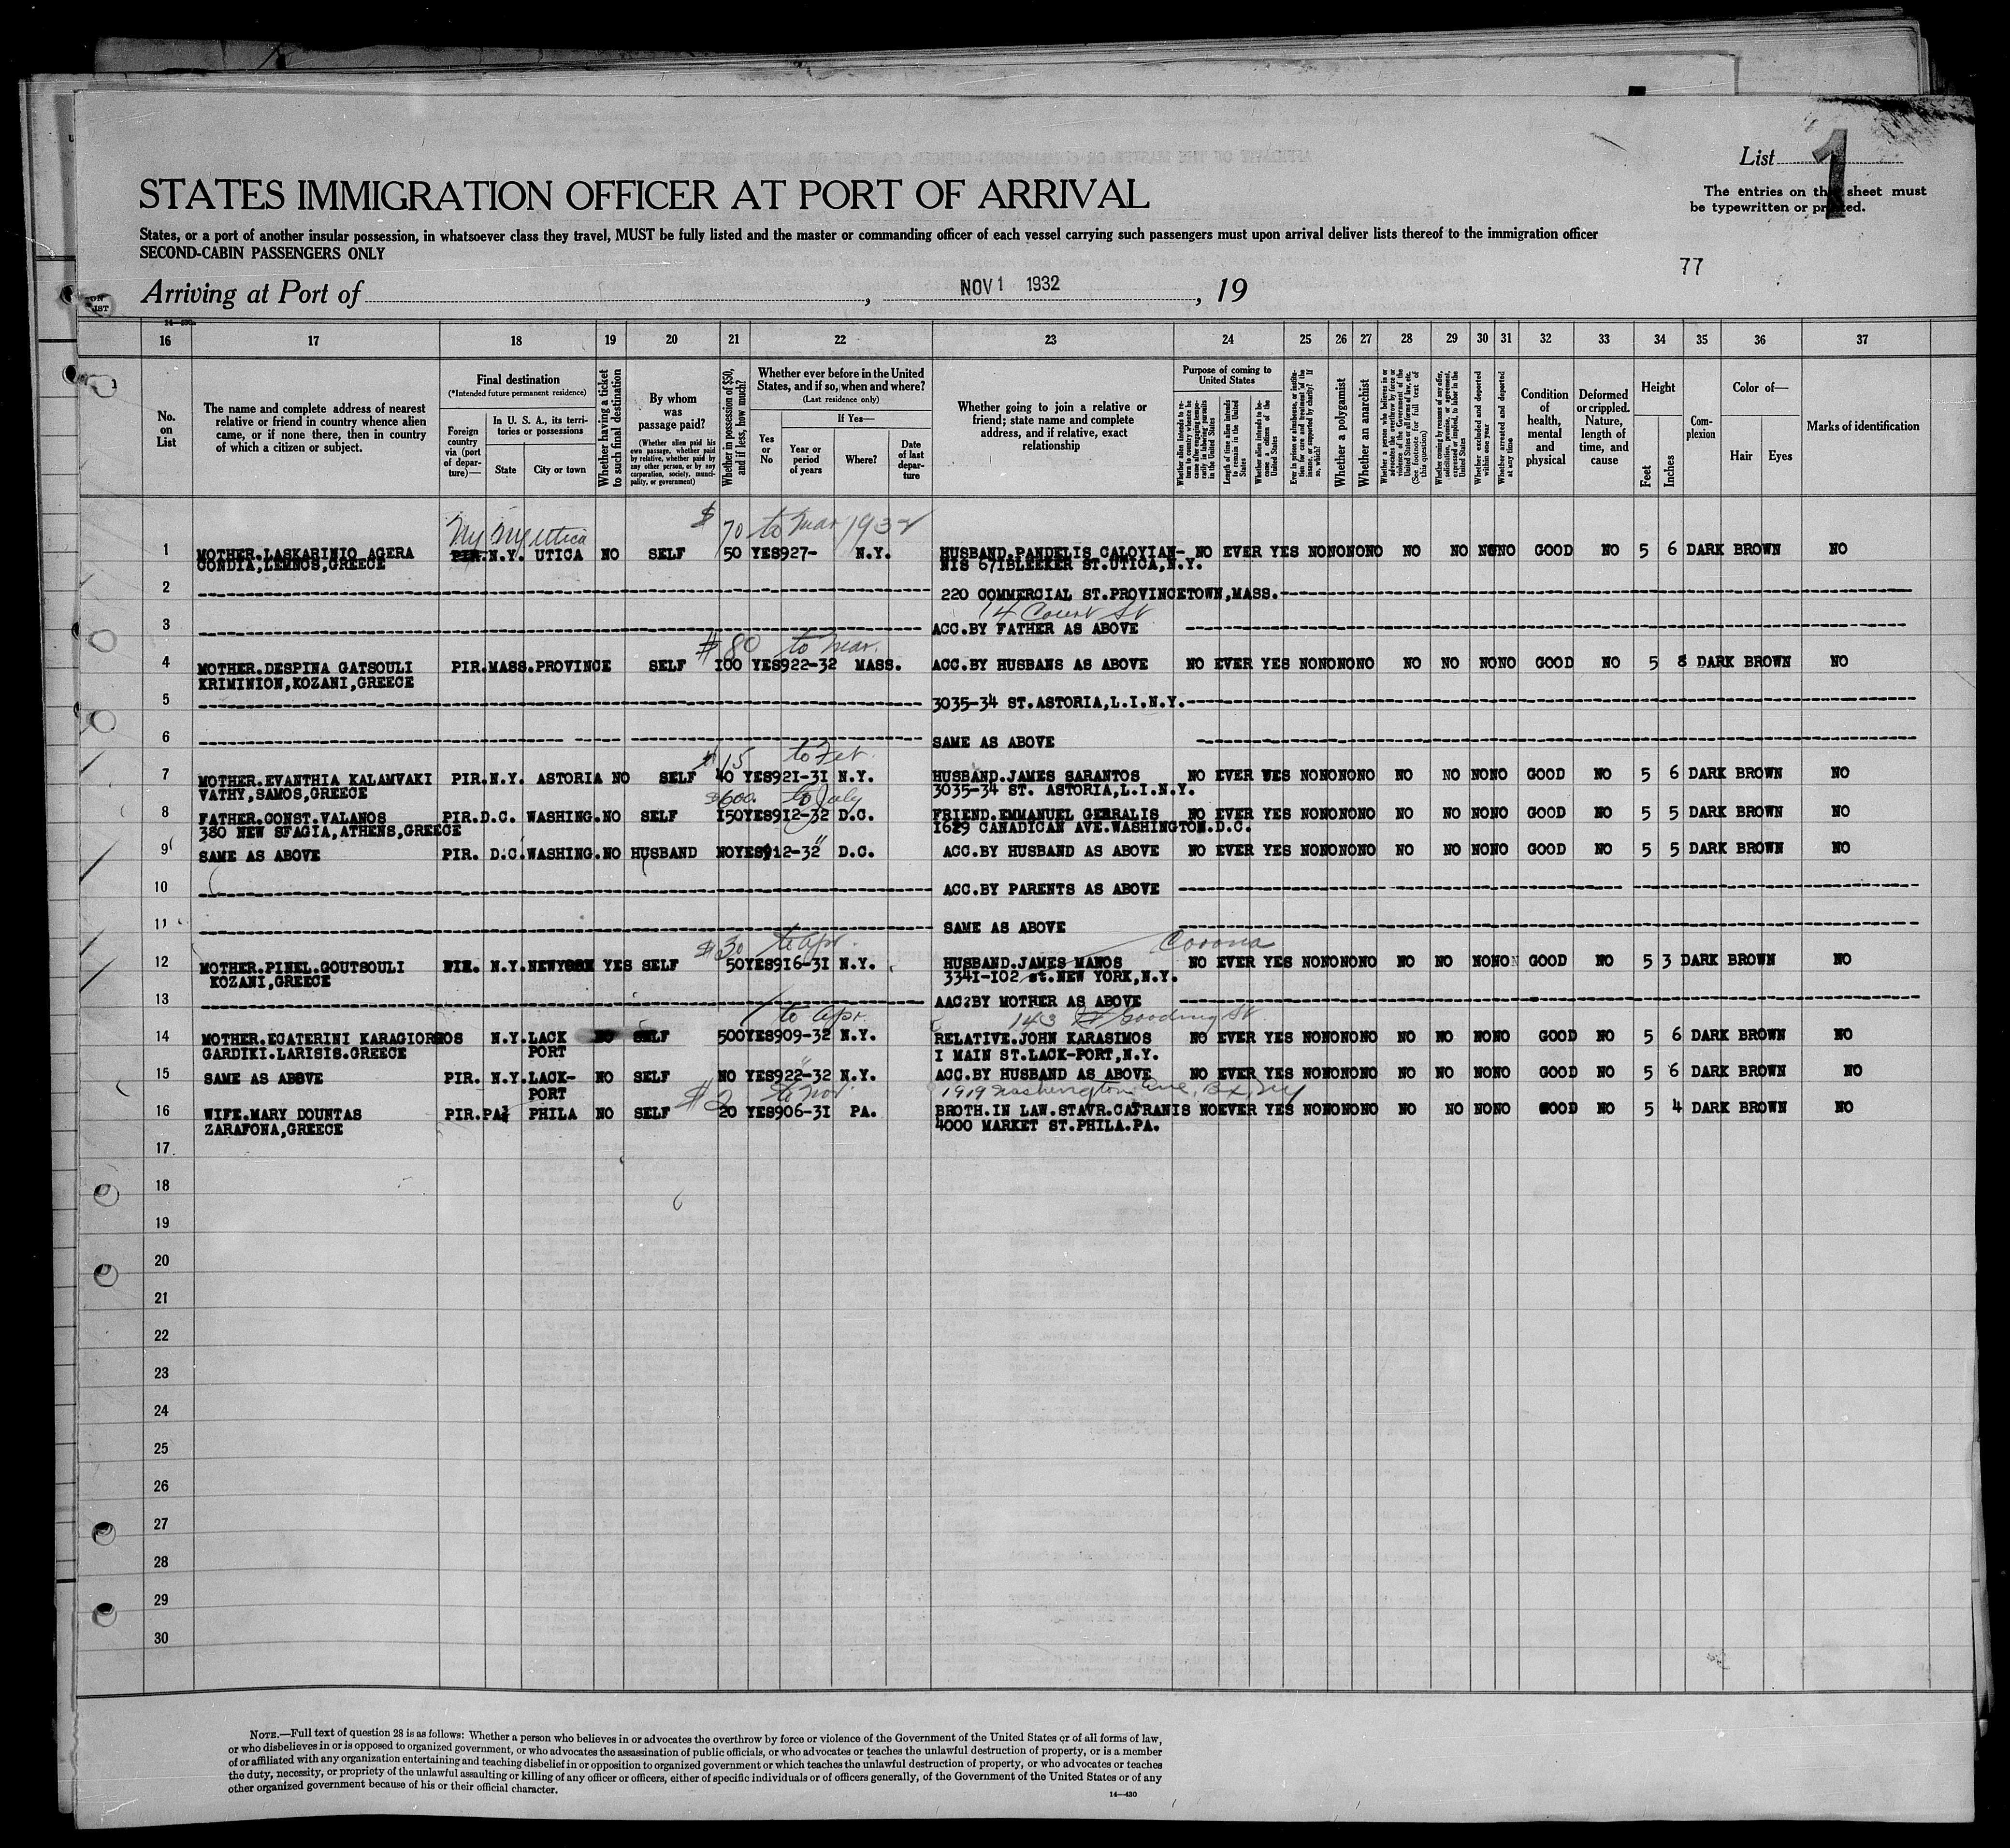 List 1
STATES IMMIGRATION OFFICER AT PORT OF ARRIVAL
The entries on this sheet must
be typewritten or printed.
States, or a port of another insular possession, in whatsoever class they travel, MUST be fully listed and the master or commanding officer of each vessel carrying such passengers must upon arrival deliver lists thereof to the immigration officer
SECOND-CABIN PASSENGERS ONLY
77
Arriving at Port of , NOV 1 1932 , 19
14-430
16 17 18 19 20 21 22 23 24 25 26 27 28 29 30 31 32 33 34 35 36 37
No. on List
The name and complete address of nearest relative or friend in country whence alien came, or if none there, then in country of which a citizen or subject.
Final destination
(*Intended future permanent residence)
Foreign country via (port of departure)—
In U. S. A., its territories or possessions
State
City or town
Whether having a ticket to such final destination
By whom was passage paid?
(Whether alien paid his own passage, whether paid by relative, whether paid by any other person, or by any corporation, society, municipality, or government)
Whether in possession of $50, and if less, how much?
Whether ever before in the United States, and if so, when and where?
(Last residence only)
Yes or No
If Yes—
Year or period of years
Where?
Date of last departure
Whether going to join a relative or friend; state name and complete address, and if relative, exact relationship
Purpose of coming to United States
Length of time alien intends to remain in the United States
Whether alien intends to become a citizen of the United States
Whether a polygamist
Whether an anarchist
Whether excluded and deported within one year
Whether arrested and deported at any time
Condition of health, mental and physical
Deformed or crippled. Nature, length of time, and cause
Height
Feet
Inches
Complexion
Color of—
Hair
Eyes
Marks of identification
NY NY Utica $ 70 to Mar 1932
1 MOTHER.LASKARINIO AGERA PIR.N.Y. UTICA NO SELF 50 YES927- N.Y. HUSBAND.PANDELIS CALOYIAN- NO EVER YES NONONONO NO NO NONO GOOD NO 5 6 DARK BROWN NO
CONDIA,LEMNOS,GREECE NIS 671BLEEKER ST.UTICA,N.Y.
2 220 COMMERCIAL ST.PROVINCETOWN,MASS.
14 Court St
3 ACC.BY FATHER AS ABOVE
$80 to Mar.
4 MOTHER.DESPINA GATSOULI PIR.MASS.PROVINCE SELF 100 YES922-32 MASS. ACC.BY HUSBANS AS ABOVE NO EVER YES NONONONO NO NO NONO GOOD NO 5 8 DARK BROWN NO
KRIMINION,KOZANI,GREECE
5 3035-34 ST.ASTORIA,L.I.N.Y.
6 SAME AS ABOVE
$15 to Feb.
7 MOTHER.EVANTHIA KALAMVAKI PIR.N.Y. ASTORIA NO SELF 40 YES921-31 N.Y. HUSBAND.JAMES SARANTOS NO EVER YES NONONONO NO NO NONO GOOD NO 5 6 DARK BROWN NO
VATHY,SAMOS,GREECE 3035-34 ST. ASTORIA,L.I.N.Y.
$600. to July
8 FATHER.CONST.VALANOS PIR.D.C. WASHING.NO SELF 150YES912-32 D.C. FRIEND.EMMANUEL GERRALIS NO EVER YES NONONONO NO NO NONO GOOD NO 5 5 DARK BROWN NO
380 NEW SFAGIA,ATHENS,GREECE 1629 CANADICAN AVE.WASHINGTON.D.C.
9 SAME AS ABOVE PIR. D.C.WASHING.NO HUSBAND NOYES912-32 " D.C. ACC.BY HUSBAND AS ABOVE NO EVER YES NONONONO NO NO NONO GOOD NO 5 5 DARK BROWN NO
10 ACC.BY PARENTS AS ABOVE
11 SAME AS ABOVE
$30 to Apr. Corona
12 MOTHER.PINEL.GOUTSOULI PIR. N.Y.NEWYORK YES SELF 50YES916-31 N.Y. HUSBAND.JAMES MANOS NO EVER YES NONONONO NO NO NONO GOOD NO 5 3 DARK BROWN NO
KOZANI,GREECE 3341-102 st.NEW YORK,N.Y.
13 AAC?BY MOTHER AS ABOVE
to Apr. 143 Gooding St.
14 MOTHER.ECATERINI KARAGIORNOS N.Y.LACK NO SELF 500YES909-32 N.Y. RELATIVE.JOHN KARASIMOS NO EVER YES NONONONO NO NO NONO GOOD NO 5 6 DARK BROWN NO
GARDIKI.LARISIS.GREECE PORT 1 MAIN ST.LACK-PORT,N.Y.
15 SAME AS ABOVE PIR. N.Y.LACK- NO SELF NO YES922-32 N.Y. ACC.BY HUSBAND AS ABOVE NO EVER YES NONONONO NO NO NONO GOOD NO 5 6 DARK BROWN NO
PORT $2 to Nov. 1919 Washington Ave. Bx, NY
16 WIFE.MARY DOUNTAS PIR.PA PHILA NO SELF 20 YES906-31 PA. BROTH.IN LAW.STAVR.CATRANIS NOEVER YES NONONONO NO NO NONO GOOD NO 5 4 DARK BROWN NO
ZARAFONA,GREECE 4000 MARKET ST.PHILA.PA.
17
18
19
20
21
22
23
24
25
26
27
28
29
30
NOTE.—Full text of question 28 is as follows: Whether a person who believes in or advocates the overthrow by force or violence of the Government of the United States or of all forms of law,
or who disbelieves in or is opposed to organized government, or who advocates the assassination of public officials, or who advocates or teaches the unlawful destruction of property, or is a member
of or affiliated with any organization entertaining and teaching disbelief in or opposition to organized government or which teaches the unlawful destruction of property, or who advocates or teaches
the duty, necessity, or propriety of the unlawful assaulting or killing of any officer or officers, either of specific individuals or of officers generally, of the Government of the United States or of any
other organized government because of his or their official character.
14—430